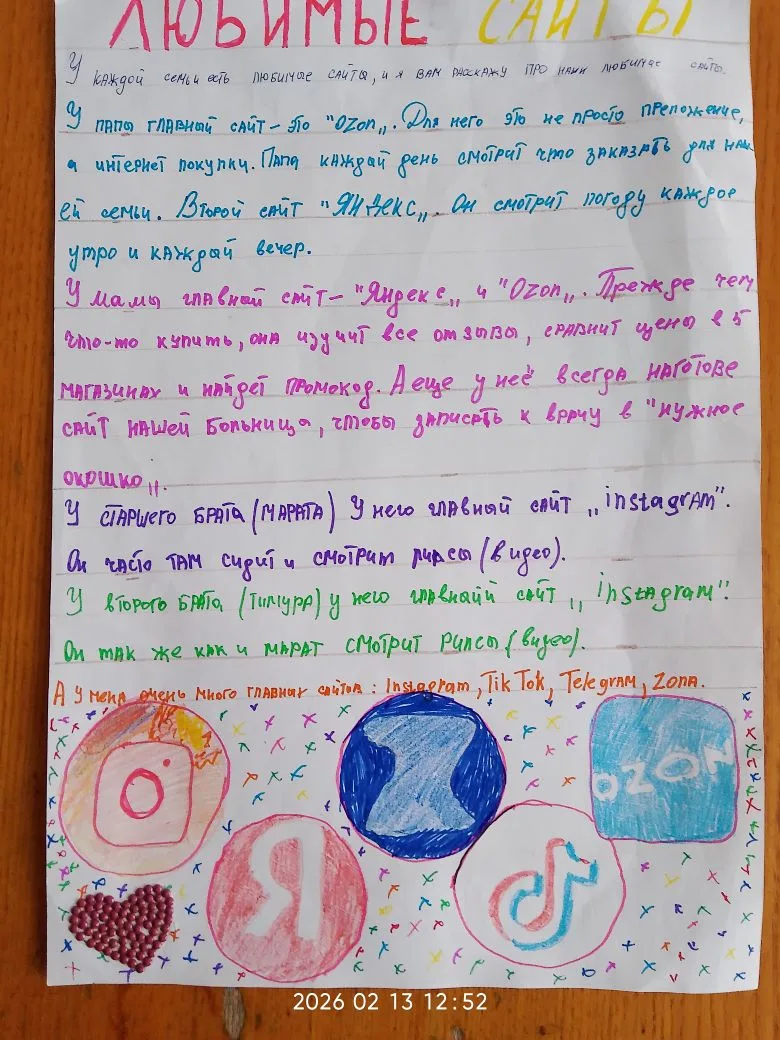 ЛЮБИМЫЕ САЙТЫ
У каждой семьи есть любимые сайты, и я вам расскажу про наши любимые сайты.
У папы главный сайт – это "Ozon„. Для него это не просто преложение,
а интернет покупки. Папа каждый день смотрит что заказать для наш
ей семьи. Второй сайт "ЯНдекс„. Он смотрит погоду каждое
утро и каждый вечер.
У мамы главный сайт – "Яндекс„ и "Ozon„. Прежде чем
что-то купить, она изучит все отзывы, сравнит цены в 5
магазинах и найдет промокод. А еще у неё всегда наготове
сайт нашей больница, чтобы записать к врачу в "нужное
окошко„.
У старшего брата (Марата) У него главный сайт „instagram".
Он часто там сидит и смотрит рилсы (видео).
У второго брата (Тимура) у него главный сайт „instagram".
Он так же как и Марат смотрит рилсы (видео).
А у меня очень много главных сайтов: Instagram, Tik Tok, Telegram, Zona.
OZON
Я
2026 02 13 12:52